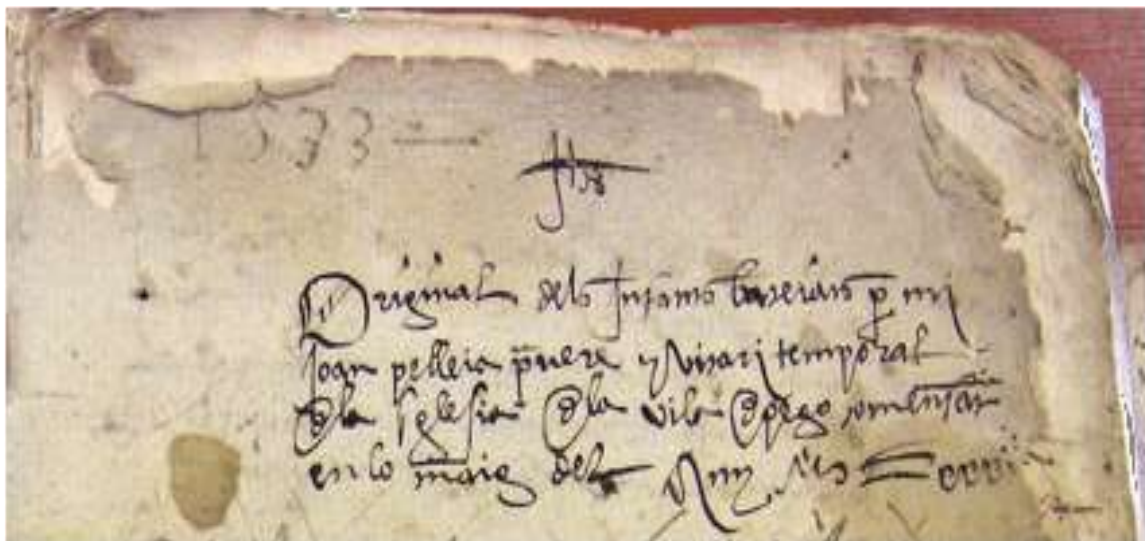 1533
Jhs
Original dels Infants batejats p mi
Joan pellicer pvere y vicari temporal
de la Iglesia de la vila de pego
en lo maig del Any